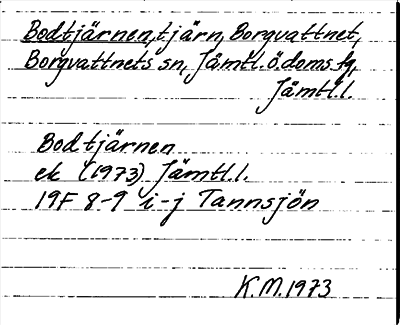 Bodtjärnen, tjärn, Borgvattnet,
Borgvattnets sn, Jämtl. ö. doms. tg,
Jämtl.l.
Bodtjärnen
ek (1973) Jämtl.l.
19F 8-9 i-j Tannsjön
K.M. 1973